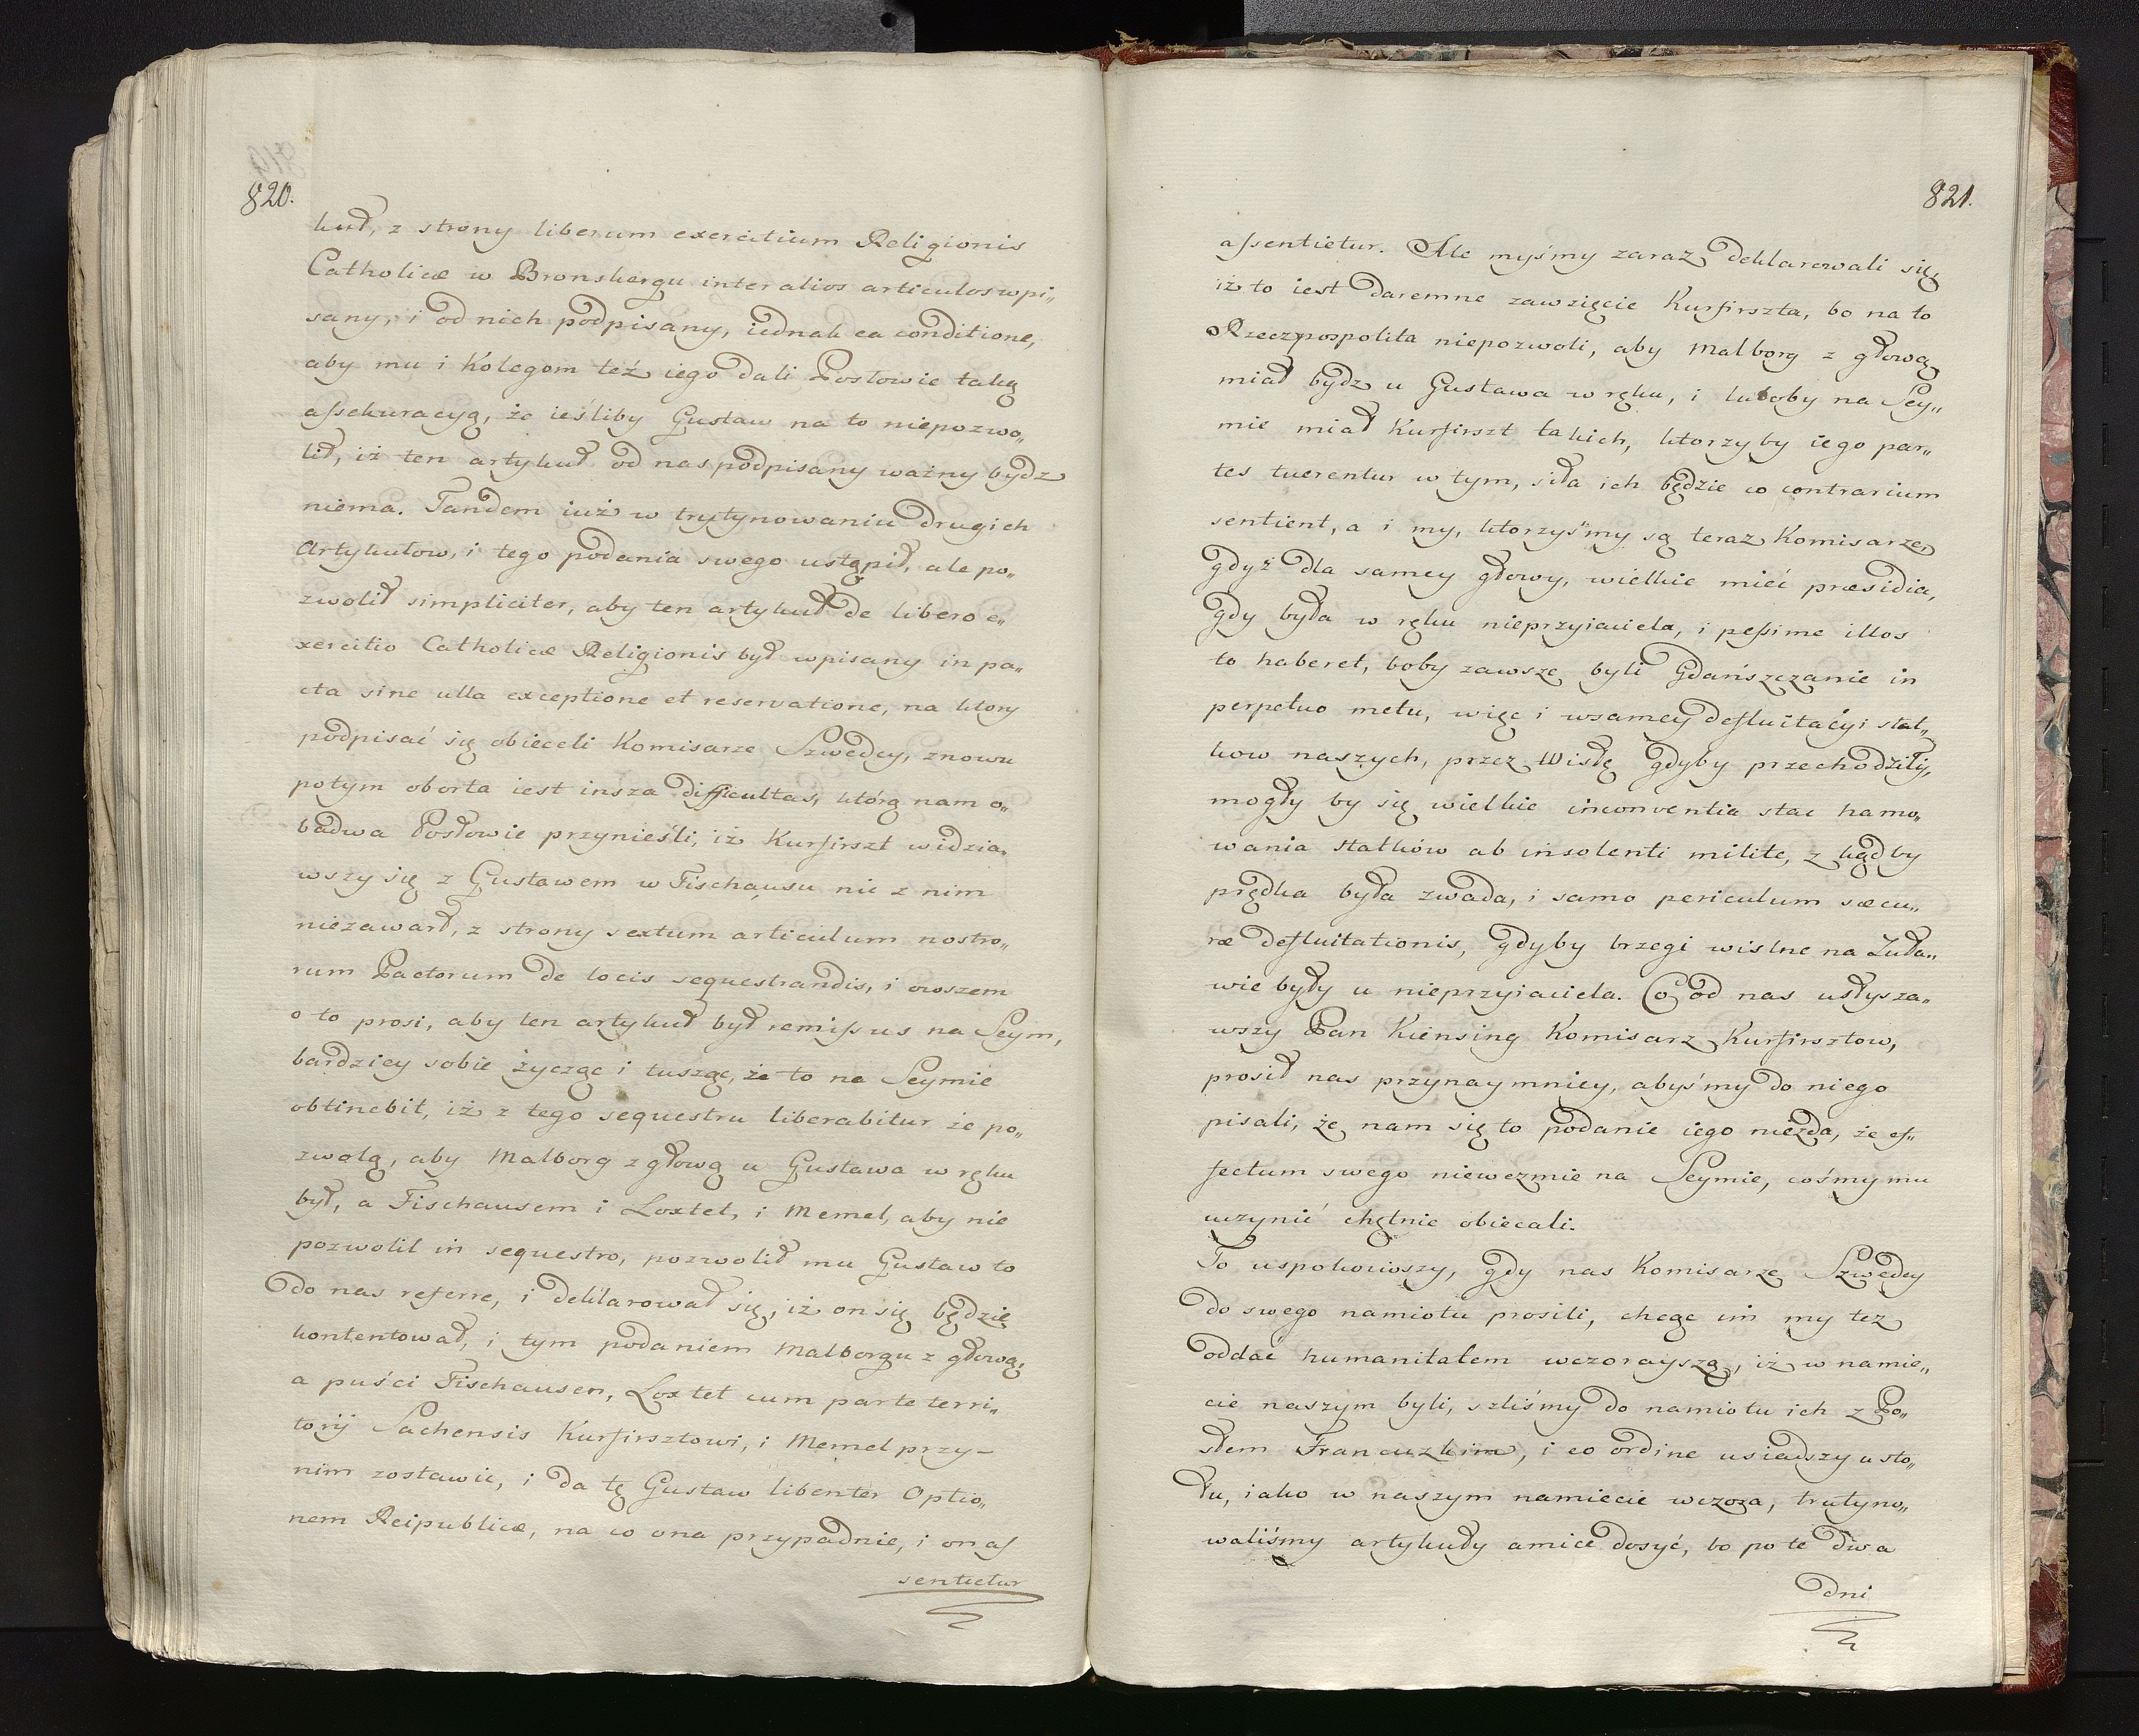 820.
kuł, z strony liberum exercitium Religionis
Catholicæ w Bronsbergu inter alios articulos wpi„
sany, i od nich podpisany, iednak ea conditione,
aby mu i Kolegom też iego dali Posłowie taką
assekuracyą, że ieśliby Gustaw na to niepozwo„
lił, iż ten artykuł od nas podpisany ważny bydz
niema. Tandem iuż w trytynowaniu drugich
Artykułow, i tego podania swego ustąpił, ale po„
zwolił simpliciter, aby ten artykuł de libero e„
xercitio Catholicæ Religionis był wpisany in pa„
cta sine ulla exceptione et reservatione, na ktory
podpisać się obieceli Komisarze Szwedcy, znowu
potym oborta iest insza difficultas, którą nam o„
badwa Posłowie przynieśli, iż Kurfirszt widzia„
wszy się z Gustawem w Fischausu nic z nim
niezawarł, z strony sextum articulum nostro„
rum Pactorum de locis sequestrandis, i owszem
o to prosi, aby ten artykuł był remissus na Seym,
bardziey sobie życząc i tusząc, że to na Seymie
obtinebit, iż z tego sequestru liberabitur że po„
zwolą, aby Malborg z głową u Gustawa w ręku
był, a Fischausem i Loxtet, i Memel, aby nie
pozwolił in sequestro, pozwolił mu Gustaw to
do nas referre, i deklarował się, iż on się będzie
kontentował, i tym podaniem Malborgu z głową,
a puści Fischausen, Loxtet cum parte terri„
torij Sachensis Kurfirsztowi, i Memel przy-
nim zostawie, i da tę Gustaw libenter Optio„
nem Reipublicæ, na co ona przypadnie, i on as
sentietur
821.
assentietur. Ale myśmy zaraz deklarowali się,
iż to iest daremne zawzięcie Kurfirszta, bo na to
Rzeczpospolita niepozwoli, aby Malborg z głową
miał bydz u Gustawa w ręku, i luboby na Sey„
mie miał Kurfirszt takich, ktorzyby iego par„
tes tuerentur w tym, siła ich będzie co contrarium
sentient, a i my, ktorzyśmy są teraz Komisarze,
gdyż dla samey głowy, wielkie mieć præsidia,
gdy była w ręku nieprzyiaciela, i pessime illos
to haberet, boby zawsze byli Gdańszczanie in
perpetuo metu, więc i w samey defluitacyi stat„
kow naszych, przez Wisłę gdyby przechodziły,
mogły by się wielkie inconventia stac hamo„
wania statków ab insolenti milite, z kąd by
prędka była zwada, i samo periculum sæcu„
ræ defluitationis, gdyby brzegi wislne na Zuła„
wie były u nieprzyiaciela. Co od nas usłysza„
wszy Pan Kiensing Komisarz Kurfirsztow,
prosił nas przynaymniey, abyśmy do niego
pisali, że nam się to podanie iego niezda, że ef„
fectum swego niewezmie na Seymie, cośmy mu
uczynić chętnie obiecali.
To uspokoiwszy, gdy nas Komisarze Szwedcy
do swego namiotu prosili, chcąc im my tez
oddać humanitatem wczorayszą, iż w namie„
cie naszym byli, szliśmy do namiotu ich z Po„
słem Francuzkim, i eo ordine usiadszy u sto„
łu, iako w naszym namiecie wczora, trutyno„
waliśmy artykuły amice dosyć, bo po te dwa
dni